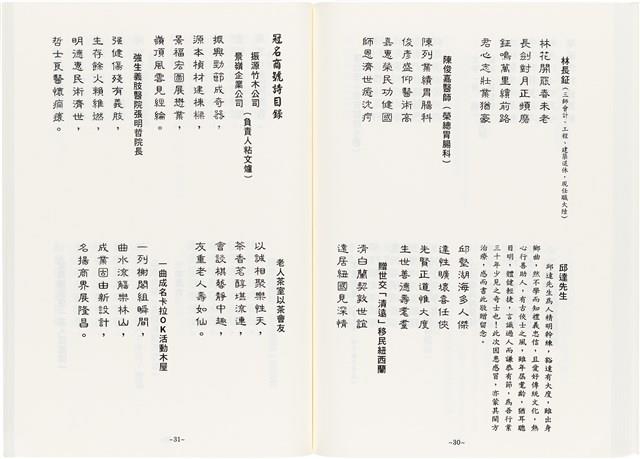 林長鉦（三師會計、工程、建築退休，現任職大陸）
林花開罷春未老
長劍對月正頻磨
鉦鳴萬里續前路
君心志壯業猶豪
陳俊嘉醫師（榮總胃腸科）
陳列業績胃腸科
俊彥盛仰醫術高
嘉惠榮民功健國
師恩濟世療沈疴
邱達先生
邱達先生為人精明幹練，豁達有大度，雖出身
鄉曲，然不學而知禮義忠信，且愛好傳統文化，熱
心行善助人，有古俠士之風，雖年屆耄齡，猶耳聰
目明，體健輕捷，言議過人而謙恭有節，為吾行業
三十年少見之奇士也！此次因患感冒，亦蒙其開方
治療，感而書此敬贈留念。
邱塾湖海多人傑
達性曠壞喜任俠
先賢正道惟大度
生世善德壽耄耋
贈世交「清遠」移民紐西蘭
清白蘭契敦世誼
遠居紐國見深情
~30~
冠名商號詩目錄
振源竹木公司
景嶺企業公司（負責人粘文爐）
振興勁節成奇器，
源本楨材建棟樑，
景福宏圖展懋業，
嶺頂風雲見經綸。
強生義肢醫院張明哲院長
強健傷殘有義肢，
生存餘火賴維燃，
明德惠民術濟世，
哲士良醫懷痌瘝。
老人茶室以茶會友
以誠相聚樂性天，
茶香茗醇堪流連，
會談棋藝靜中趣，
友重老人壽如仙。
一曲成名卡拉OK活動木屋
一列榭閣組瞬間，
曲水流觴樂林山，
成業固由新設計，
名揚商界展隆昌。
~31~